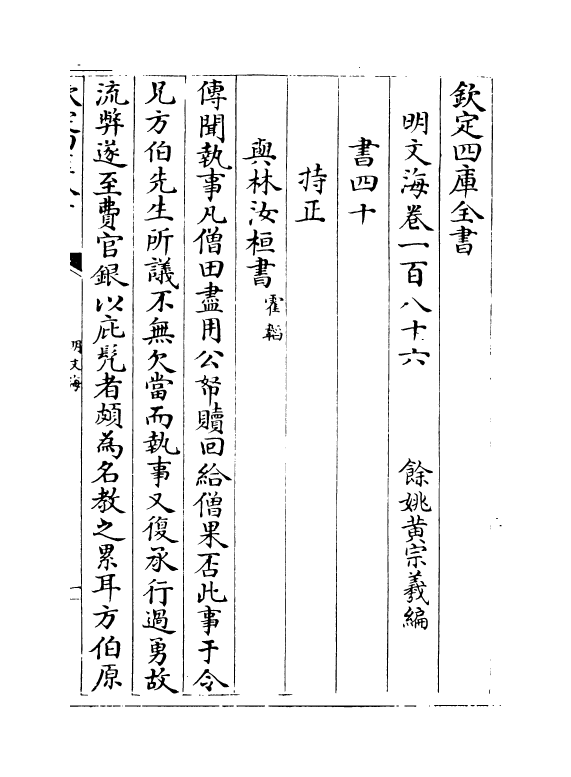 欽定四庫全書
明文海卷一百八十六　餘姚黄宗羲編
書四十
持正
與林汝桓書　霍韜
傳聞執事凡僧田盡用公帑贖回給僧果否此事于令
見方伯先生所議不無欠當而執事又復承行過勇故
流弊遂至費官銀以庇髡者頗為名教之累耳方伯原
明文海
一